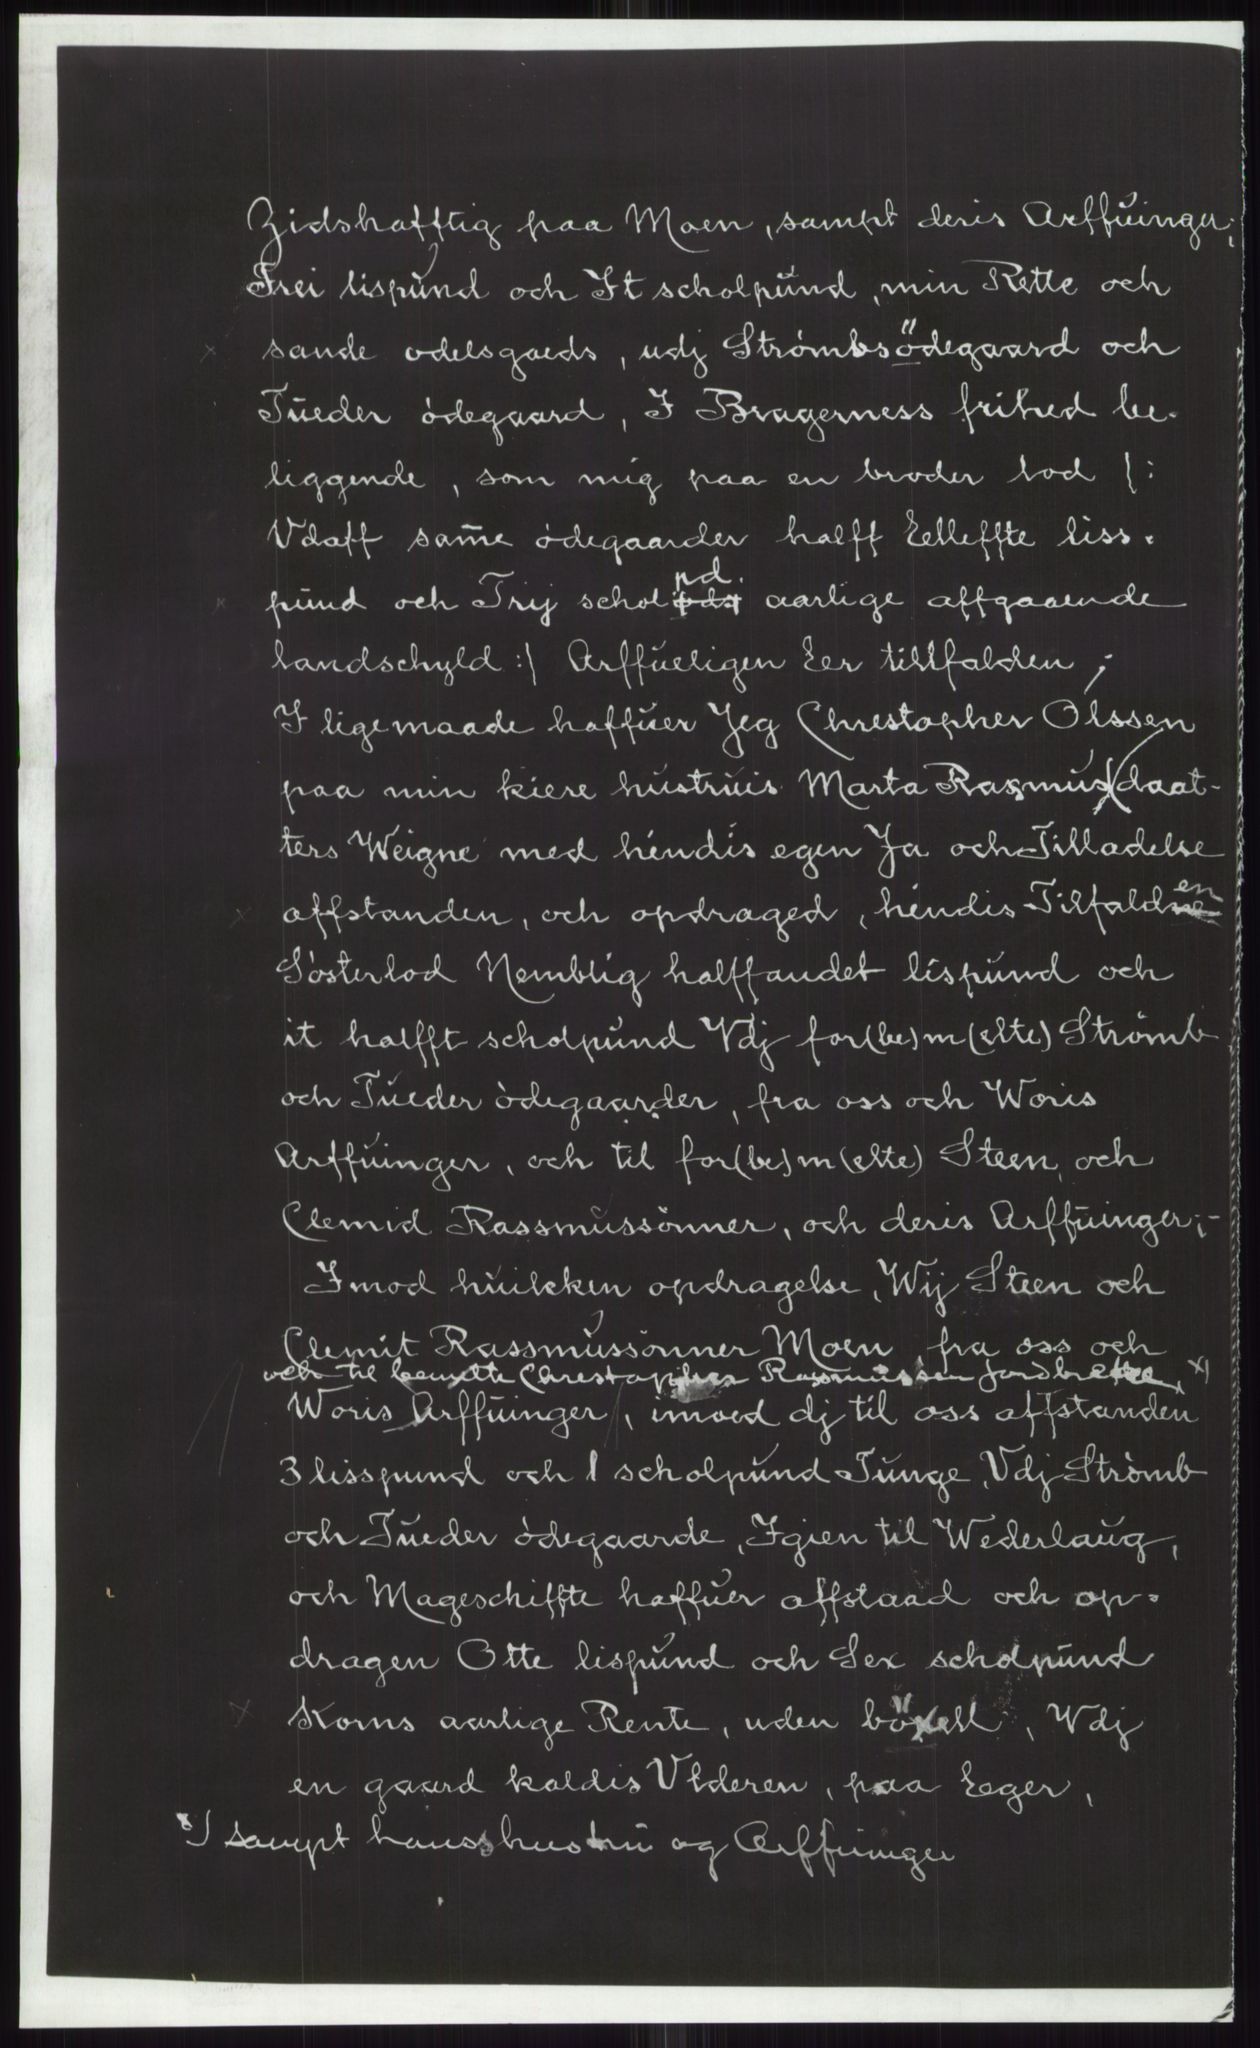 Zidshafftig paa Moen, sampt deris Arffuinger;
Trei lispund och It scholpund, min Rette och
sande odelsgoeds, udj Strömbsödegaard och
Tueder ödegaard, I Bragerness frihed be-
liggende, som mig paa en broder lod |:
Vdaff same ödegaarder halff Eelleffte liss-
pund och Trij schol pd. aarlige affgaaende
landschyld :| Arffueligen Eer tillfalden;
I ligemaade haffuer Jeg Chrestopher Olssen
paa min kiere hustruis Marta Rasmus daat-
ters Weigne med hendis egen Ja och Tilladelse
affstanden, och opdraged, hendis Tilfalden
Sösterlod Nemblig halffandet lispund och
it halfft scholpund Vdj for(be)m(elte) Strömb
och Tueder ödegaarder, fra oss och Woris
Arffuinger, och til for(be)m(elte) Steen och
Clemid Rassmussönner, och deris Arffuinger;-
Imod huilken opdragelse, Wij Steen och
Clemit Rassmussönner Moen, fra oss och
och til bemelte Chrestopher Rasmussen Jordbrekke x)
Woris Arffuinger, imoed dj til oss affstanden
3 lisspund och 1 scholpund Tunge, Vdj Strömb
och Tueder ödegaarde, Igien til Wederlaug,
och Mageschiffte haffuer affstaad och op-
dragen Otte lispund och Sex scholpund
Korns aarlige Rente, uden böxell, Wdj
en gaard kaldis Vlderen, paa Eeger,
x) sampt hanss hustru og Arffuinger